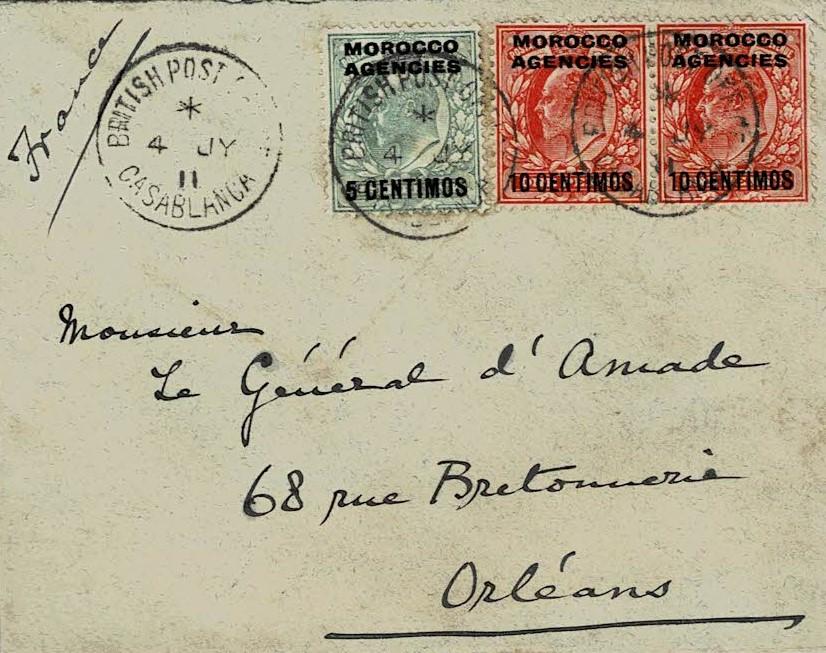 France
BRITISH POST
4 JY
11
CASABLANCA
MOROCCO
AGENCIES
5 CENTIMOS
BRITISH POST
4 JY
MOROCCO
AGENCIES
10 CENTIMOS
MOROCCO
AGENCIES
10 CENTIMOS
Monsieur
Le Général d'Amade
68 rue Bretonnerie
Orléans